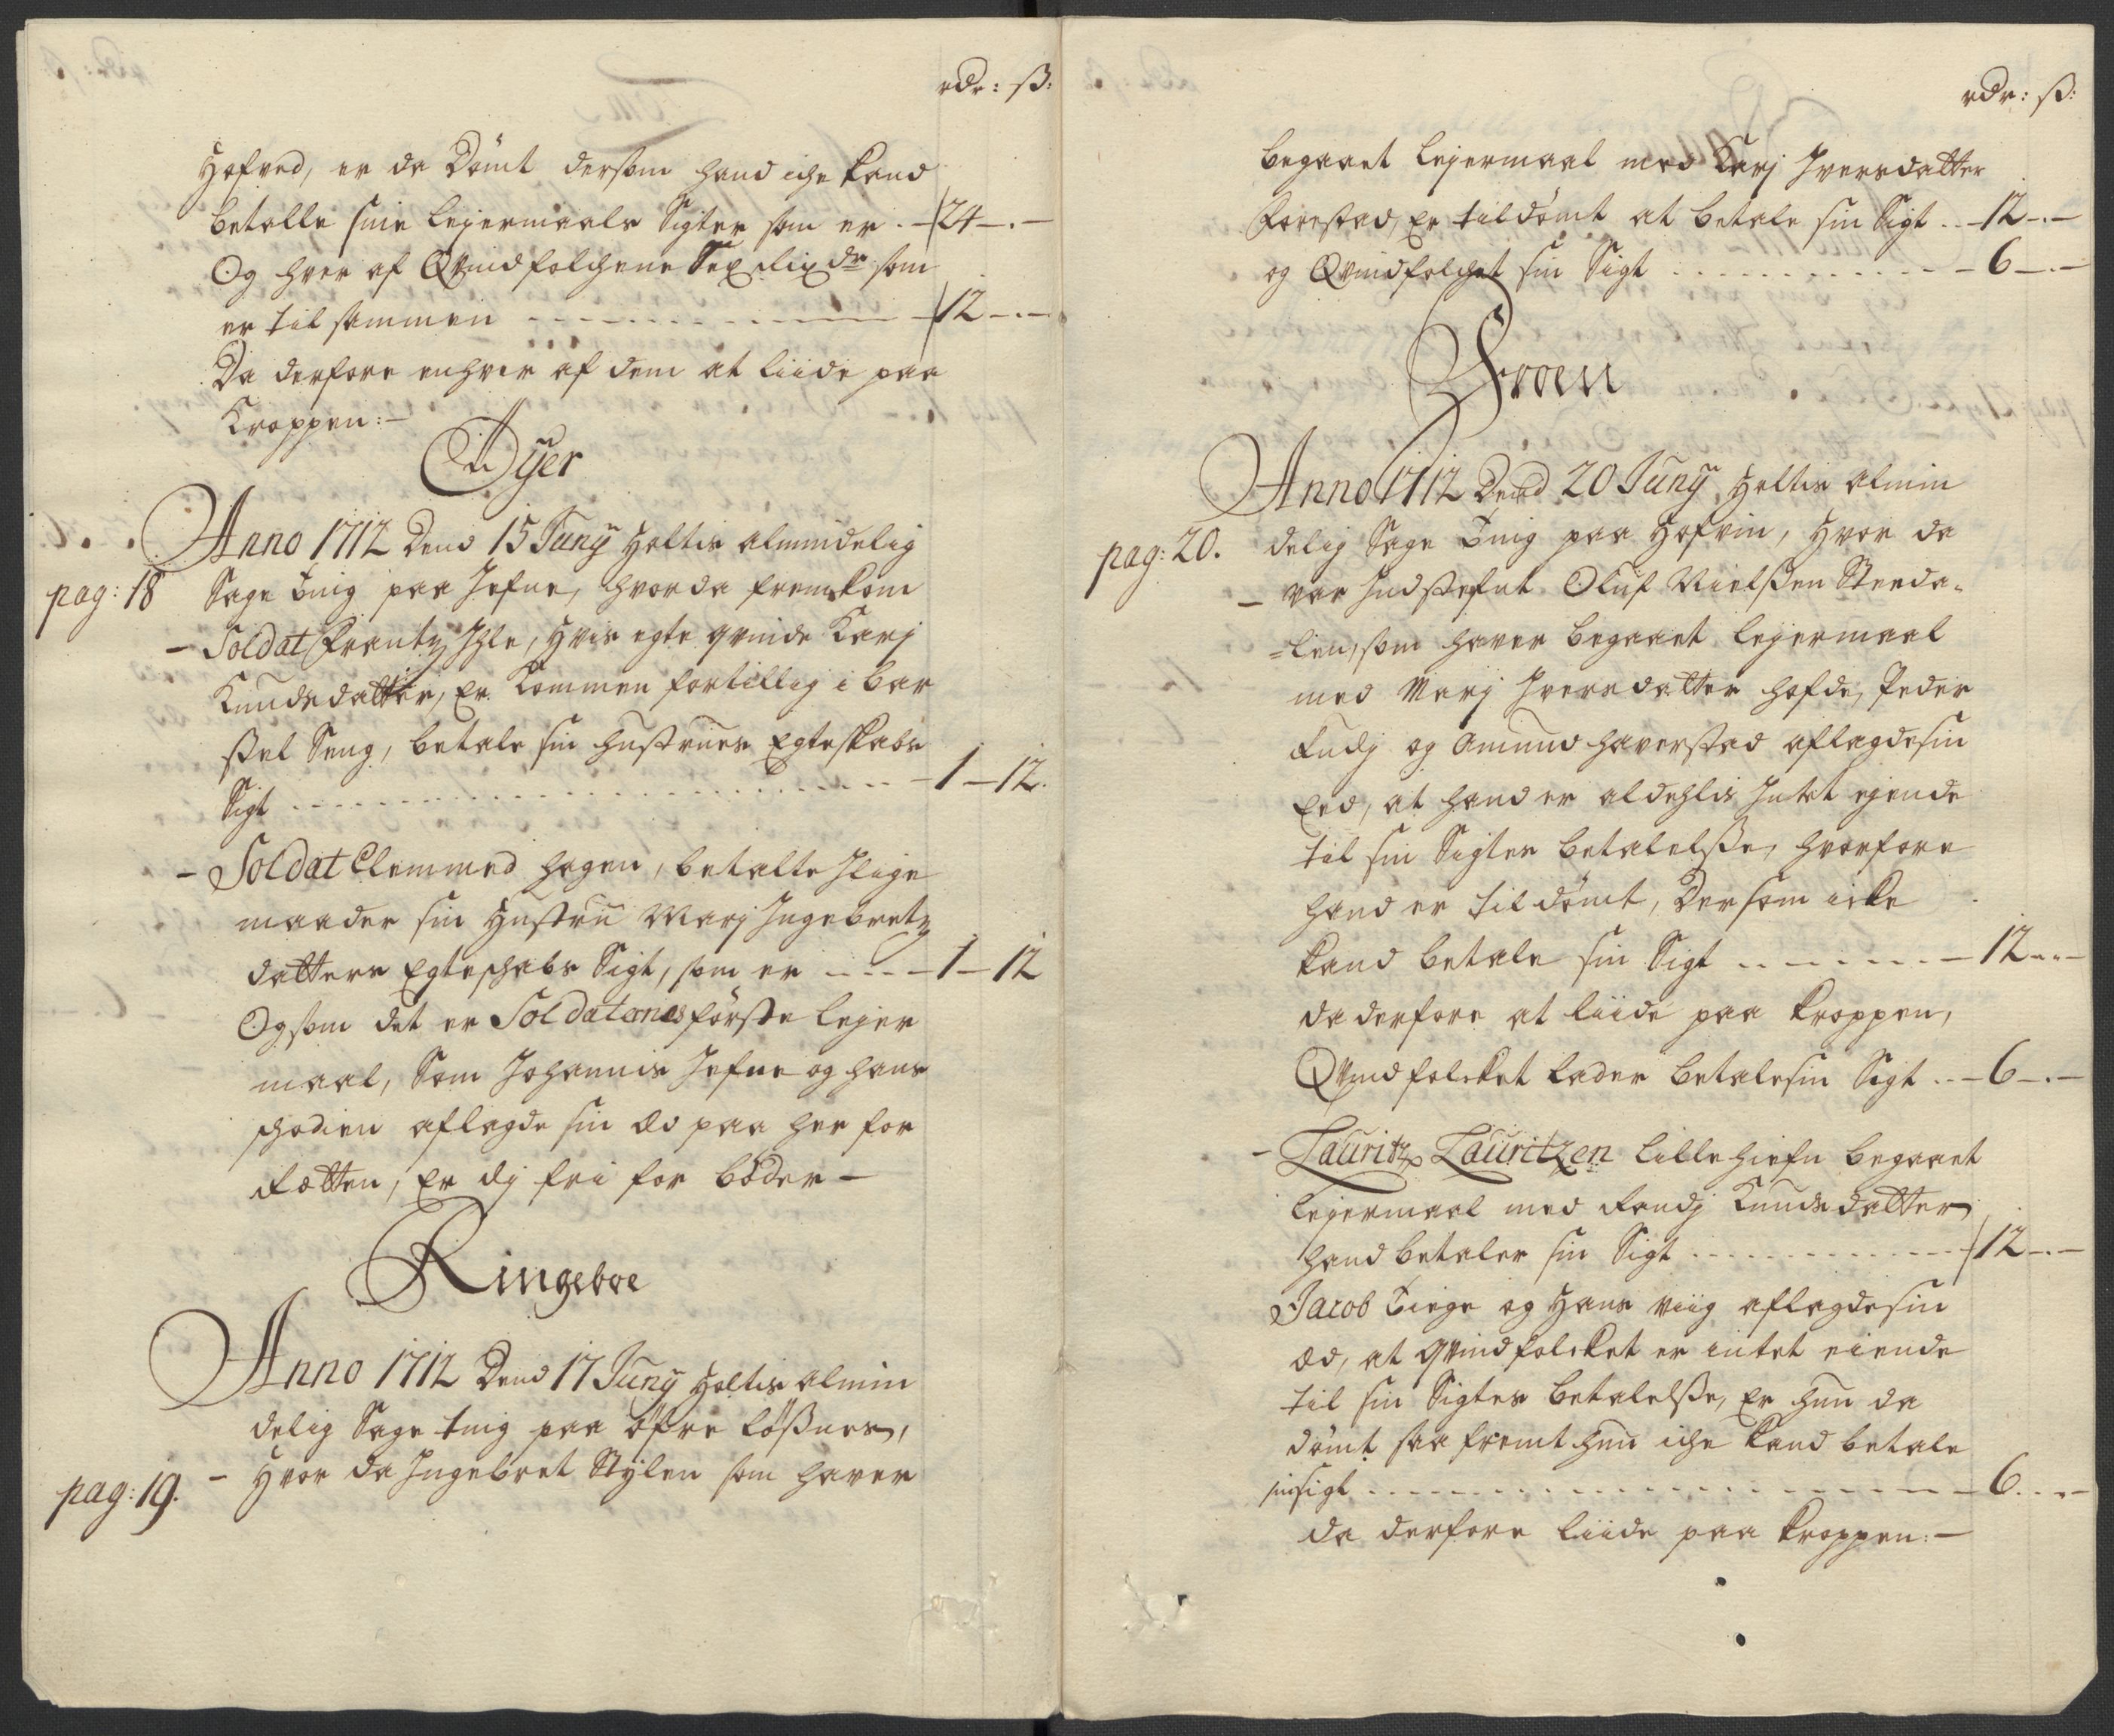 rdr: ß:
Hofved, er da Dömt dersom hand iche kand
betalle sine lejermaals Sigter som er . - 24 - . -
Og hver af Qvindfolchene Sex rix dr som
er til sammen - 12 - . -
Da derfore enhver af dem at liide paa
Kroppen: -
Øyer
Anno 1712 Dend 15 Junij Holtis almindelig
pag: 18 Sage Ting paa Jefne, hvor da fremkom
- Soldat Frantz Ihle, hvis egte qvinde Karj
Knudsdatter, er kommen fortillig i bar
ssel Seng, betale sin hustrues Egteskabs
Sigt - 1 - 12.
- Soldat Clemmed Hagen, betalte Jlige
maader sin Hustru Marj Ingebretz
datters Egteschabs Sigt, som er - 1 - 12
Og som det er Soldaternes förste lejer
maal, Som Johannis Jefne og hans
schodien aflagde sin æd paa her for
Rætten, er dj fri for böder -
Ringeboe
Anno 1712 Dend 17 Junij Holtis almin
delig Sage ting paa öfre Lößnes,
pag: 19. - Hvor da Ingebret Stÿlen som haver
rdr: ß:
begaaet lejermaal med Karj Iversdatter
Forestad, er tildömt at betale sin Sigt .. - 12 - . -
og Qvindfolchet sin Sigt - 6 - . -
Froen
Anno 1712 Dend 20 Junij Holtis almin
pag: 20. delig Sage Ting paa Hofvin, Hvor da
- var Indstefnt Oluf Nielßen Steeda-
=len, som haver begaaet lejermaal
med Marj Iversdatter hofde, Peder
Rudj og Amund haverstad aflagde sin
Eed, at hand er aldehlis Intet ejende
til sin Sigtes betalelße, hvorfore
hand er til dömt, Dersom icke
kand betale sin Sigt - 12 - . -
da derfore at liide paa kroppen,
Qvindfolcket lader betale sin Sigt .. - 6 - . -
- Lauritz Lauritzen Lillehiefn begaaet
lejermaal med Randj Knudsdatter
hand betaler sin Sigt - 12 - . -
Jacob Tiøge og Hans Viig aflagde sin
æd, at qvindfolcket er intet eiende
til sin Sigtes betalelße, er hun da
dömt saa fremt hun iche kand betale
sin sigt - 6 . . -
da derfore liide paa kroppen: -